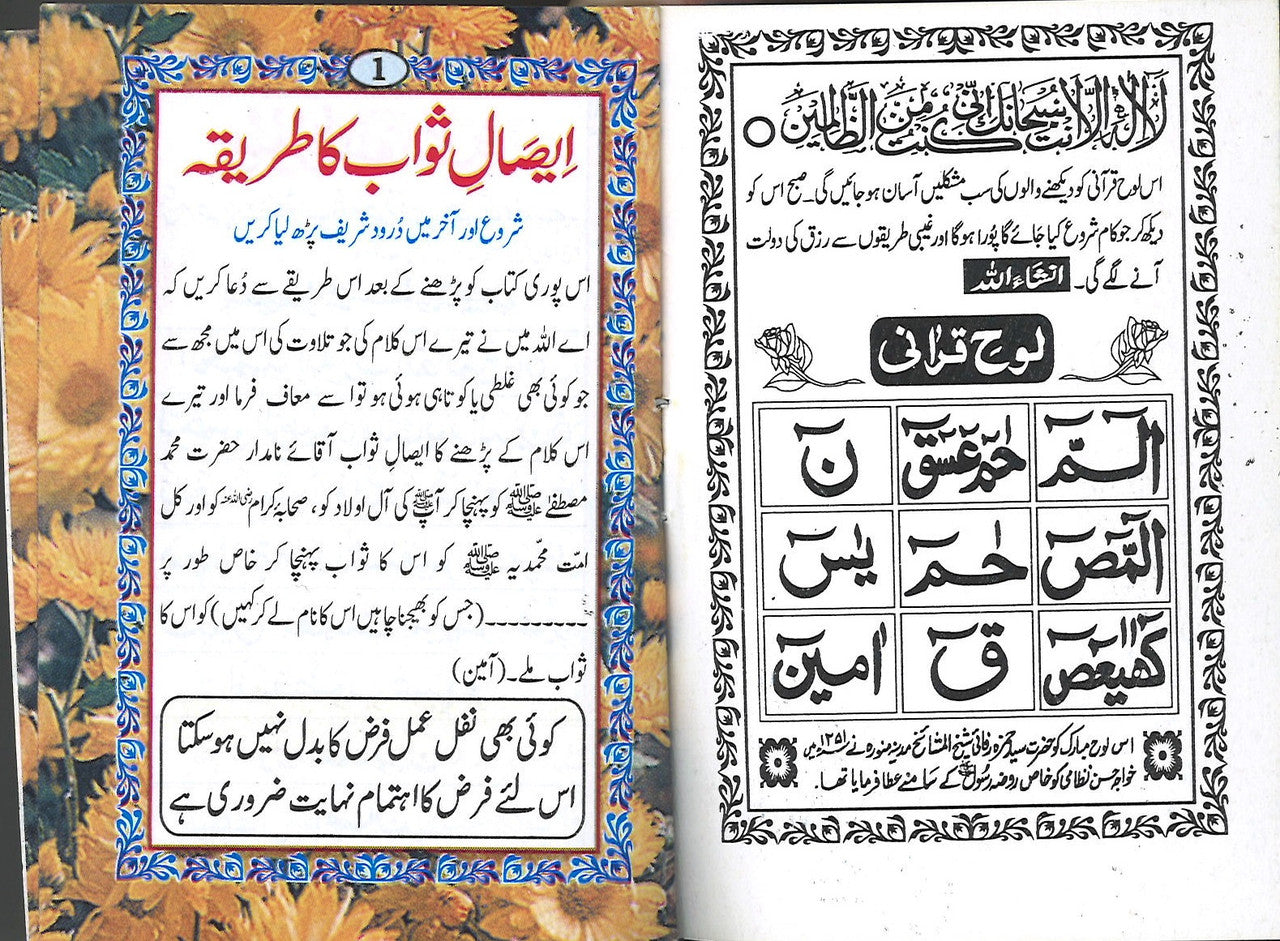 لَا اِلٰهَ اِلَّا اَنْتَ سُبْحَانَكَ اِنِّيْ كُنْتُ مِنَ الظَّالِمِيْنَ ○
اس لوح قرآنی کو دیکھنے والوں کی سب مشکلیں آسان ہو جائیں گی۔ صبح اس کو
دیکھ کر جو کام شروع کیا جائے گا پورا ہو گا اور غیبی طریقوں سے رزق کی دولت
آنے لگے گی۔ انشاءَ اللہ
لوح قرآنی
الٓمّٓ حٰمٓ عٓسٓقٓ نٓ
الٓمّٓصٓ حٰمٓ يٰسٓ
كٓهٰيٰعٓصٓ قٓ اٰمين
اس لوح مبارک کو حضرت سید حمزہ رفائی شیخ المشائخ مدینہ منورہ نے سنہ ۱۲۵۱ میں
خواجہ حسن نظامی کو خاص روضہ رسول ﷺ کے سامنے عطا فرمایا تھا۔
1
اِیصَالِ ثواب کا طریقہ
شروع اور آخر میں دُرود شریف پڑھ لیا کریں
اس پوری کتاب کو پڑھنے کے بعد اس طریقے سے دُعا کریں کہ
اے اللہ میں نے تیرے اس کلام کی جو تلاوت کی اس میں مجھ سے
جو کوئی بھی غلطی یا کوتاہی ہوئی ہو تو اسے معاف فرما اور تیرے
اس کلام کے پڑھنے کا ایصالِ ثواب آقائے نامدار حضرت محمد
مصطفےٰ ﷺ کو پہنچا کر آپ ﷺ کی آل اولاد کو، صحابۂ کرام رضی اللہ عنہ کو اور کل
امت محمّدیہ ﷺ کو اس کا ثواب پہنچا کر خاص طور پر
۔۔۔۔۔۔۔۔۔۔ (جس کو بھیجنا چاہیں اس کا نام لے کر کہیں) کو اس کا
ثواب ملے۔ (آمین)
کوئی بھی نفل عمل فرض کا بدل نہیں ہو سکتا
اس لئے فرض کا اہتمام نہایت ضروری ہے